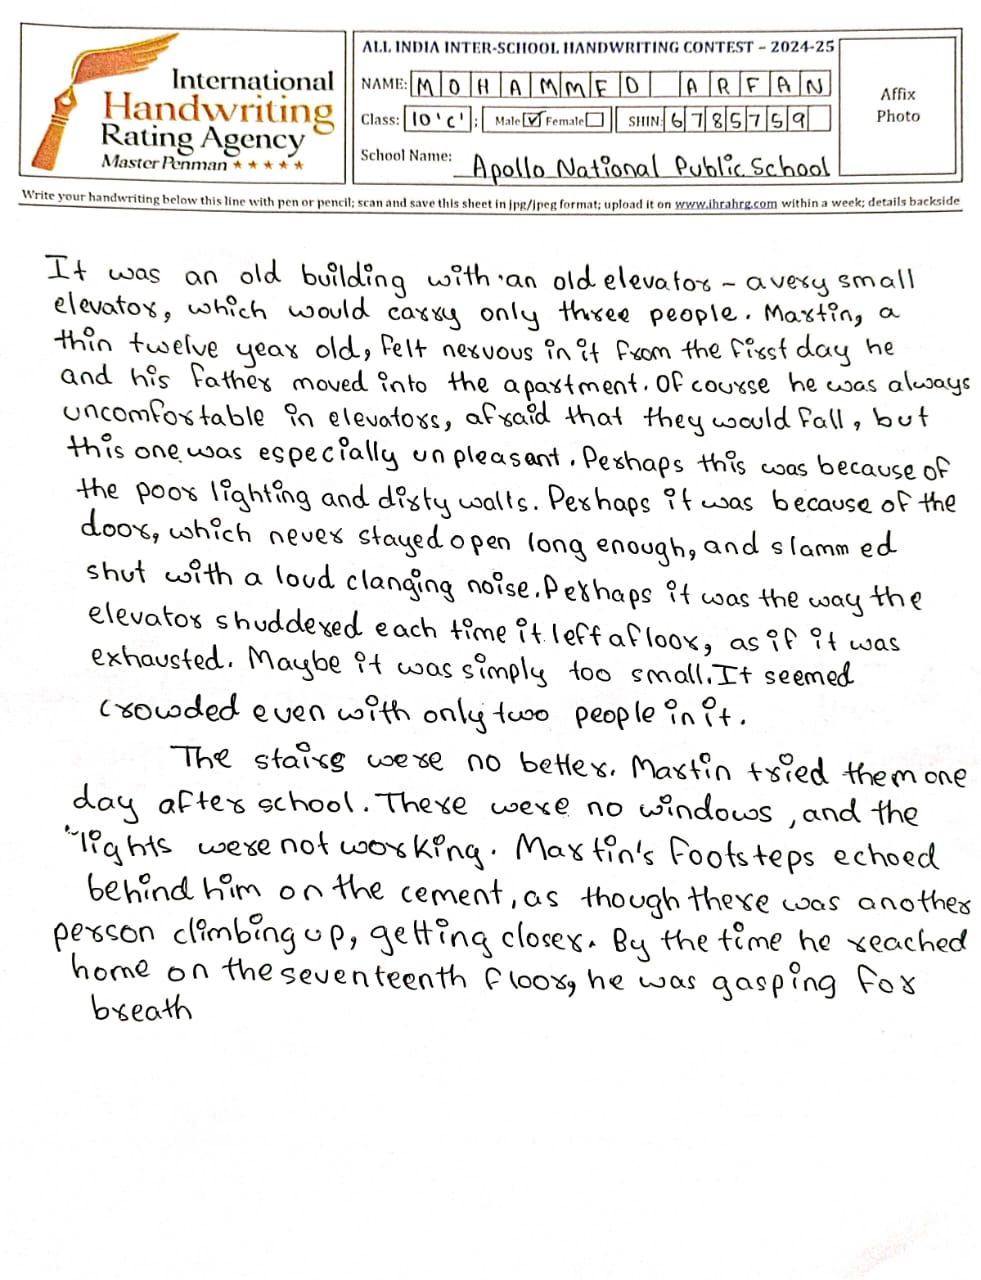 International
Handwriting
Rating Agency
Master Penman ★★★★★
ALL INDIA INTER-SCHOOL HANDWRITING CONTEST – 2024-25
NAME: MOHAMMED ARFAN
Class: 10 'C' : Male ☑ Female ☐ SHIN: 6785759
School Name: Apollo National Public School
Affix
Photo
Write your handwriting below this line with pen or pencil; scan and save this sheet in jpg/jpeg format; upload it on www.ihrahrg.com within a week; details backside
It was an old building with an old elevator – a very small
elevator, which would carry only three people. Martin, a
thin twelve year old, felt nervous in it from the first day he
and his father moved into the apartment. Of course he was always
uncomfortable in elevators, afraid that they would fall, but
this one was especially unpleasant. Perhaps this was because of
the poor lighting and dirty walls. Perhaps it was because of the
door, which never stayed open long enough, and slammed
shut with a loud clanging noise. Perhaps it was the way the
elevator shuddered each time it left a floor, as if it was
exhausted. Maybe it was simply too small. It seemed
crowded even with only two people in it.
The stairs were no better. Martin tried them one
day after school. There were no windows, and the
lights were not working. Martin's footsteps echoed
behind him on the cement, as though there was another
person climbing up, getting closer. By the time he reached
home on the seventeenth floor, he was gasping for
breath